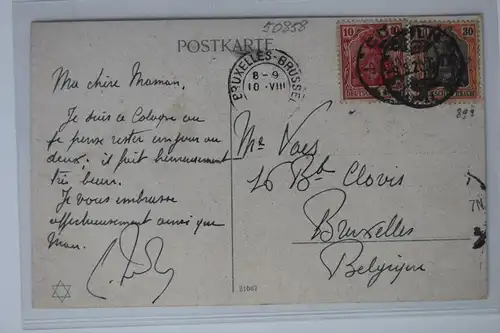 50858
POSTKARTE
10 30
BRUXELLES-BRUSSEL
8-9
10-VIII
893
Ma chère Maman.
Je suis à Cologne où
je pense rester un jour ou
deux, il fait heureusement
très beau.
Je vous embrasse
affectueusement ainsi que
Mr Vaes
16 Bd Clovis
Bruxelles
Belgique
7N